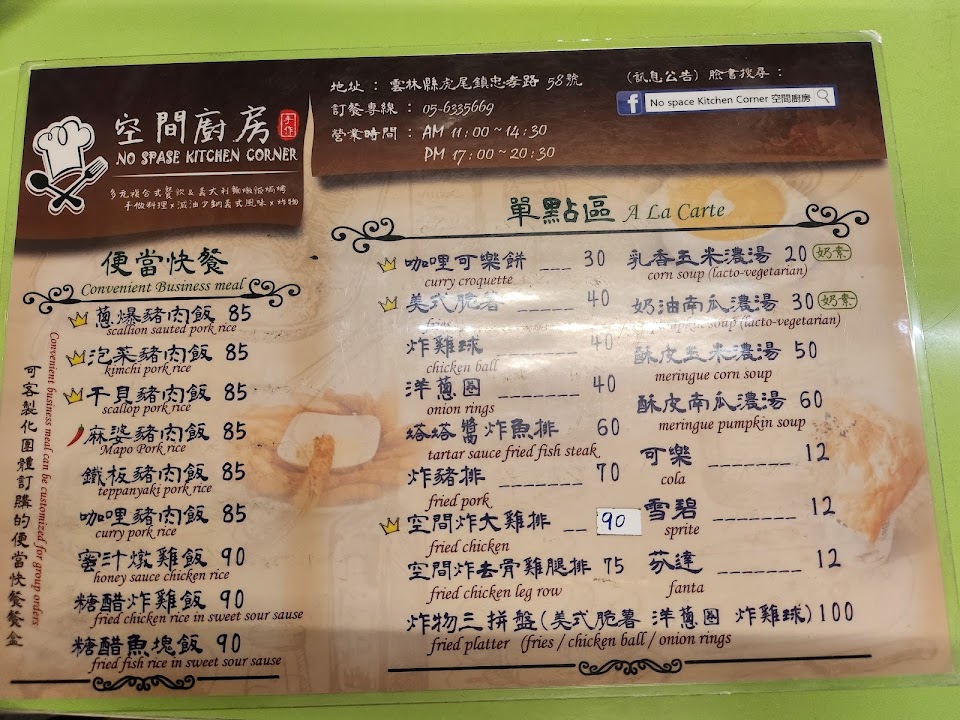 空間廚房 手作
NO SPASE KITCHEN CORNER
多元複合式餐飲&義大利麵燉飯焗烤
手做料理×減油少鈉義式風味×炸物
地址：雲林縣虎尾鎮忠孝路 58號
訂餐專線：05-6335669
營業時間：AM 11:00~14:30
PM 17:00~20:30
(訊息公告) 臉書搜尋：
f No space Kitchen Corner 空間廚房
便當快餐
Convenient Business meal
蔥爆豬肉飯 85
scallion sauted pork rice
泡菜豬肉飯 85
kimchi pork rice
干貝豬肉飯 85
scallop pork rice
麻婆豬肉飯 85
Mapo Pork rice
鐵板豬肉飯 85
teppanyaki pork rice
咖哩豬肉飯 85
curry pork rice
蜜汁燉雞飯 90
honey sauce chicken rice
糖醋炸雞飯 90
fried chicken rice in sweet sour sause
糖醋魚塊飯 90
fried fish rice in sweet sour sause
Convenient business meal can be customized for group orders
可客製化團體訂購的便當快餐餐盒
單點區 A La Carte
咖哩可樂餅 ___ 30
curry croquette
美式脆薯 ______ 40
fries
炸雞球 ________ 40
chicken ball
洋蔥圈 _______ 40
onion rings
塔塔醬炸魚排 60
tartar sauce fried fish steak
炸豬排 _______ 70
fried pork
空間炸大雞排 __ 90
fried chicken
空間炸去骨雞腿排 75
fried chicken leg row
炸物三拼盤(美式脆薯 洋蔥圈 炸雞球)100
fried platter (fries / chicken ball / onion rings
乳香玉米濃湯 20 奶素
corn soup (lacto-vegetarian)
奶油南瓜濃湯 30 奶素
soup (lacto-vegetarian)
酥皮玉米濃湯 50
meringue corn soup
酥皮南瓜濃湯 60
meringue pumpkin soup
可樂 ________ 12
cola
雪碧 ________ 12
sprite
芬達 ________ 12
fanta